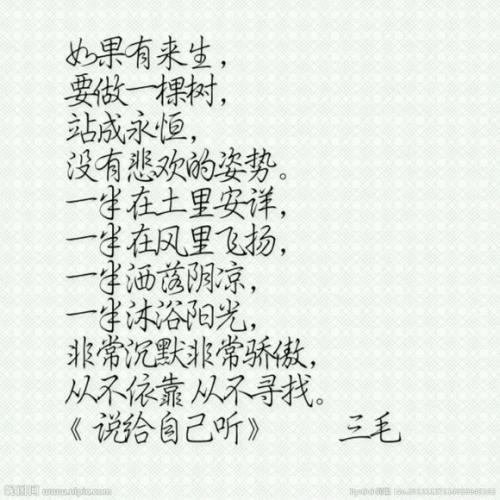 如果有来生，
要做一棵树，
站成永恒，
没有悲欢的姿势。
一半在土里安详，
一半在风里飞扬，
一半洒落阴凉，
一半沐浴阳光，
非常沉默非常骄傲，
从不依靠 从不寻找。
《说给自己听》 三毛
昵图网 www.nipic.com